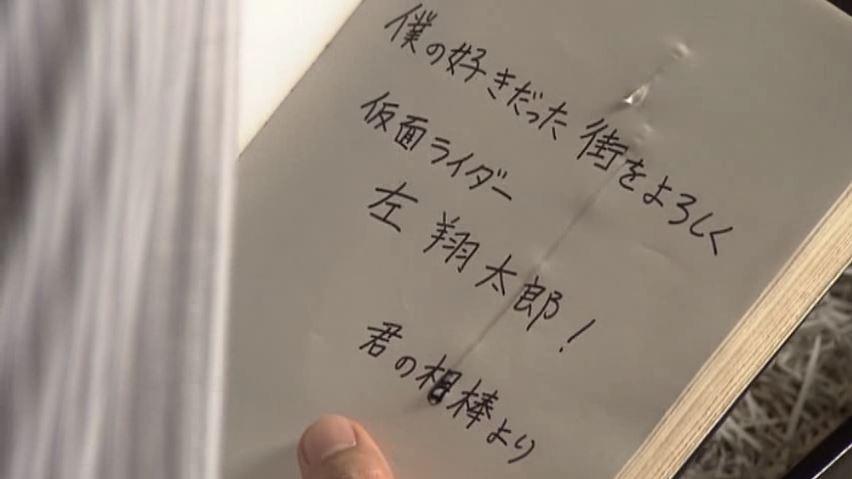 僕の好きだった街をよろしく
仮面ライダー
左 翔太郎!
君の相棒より